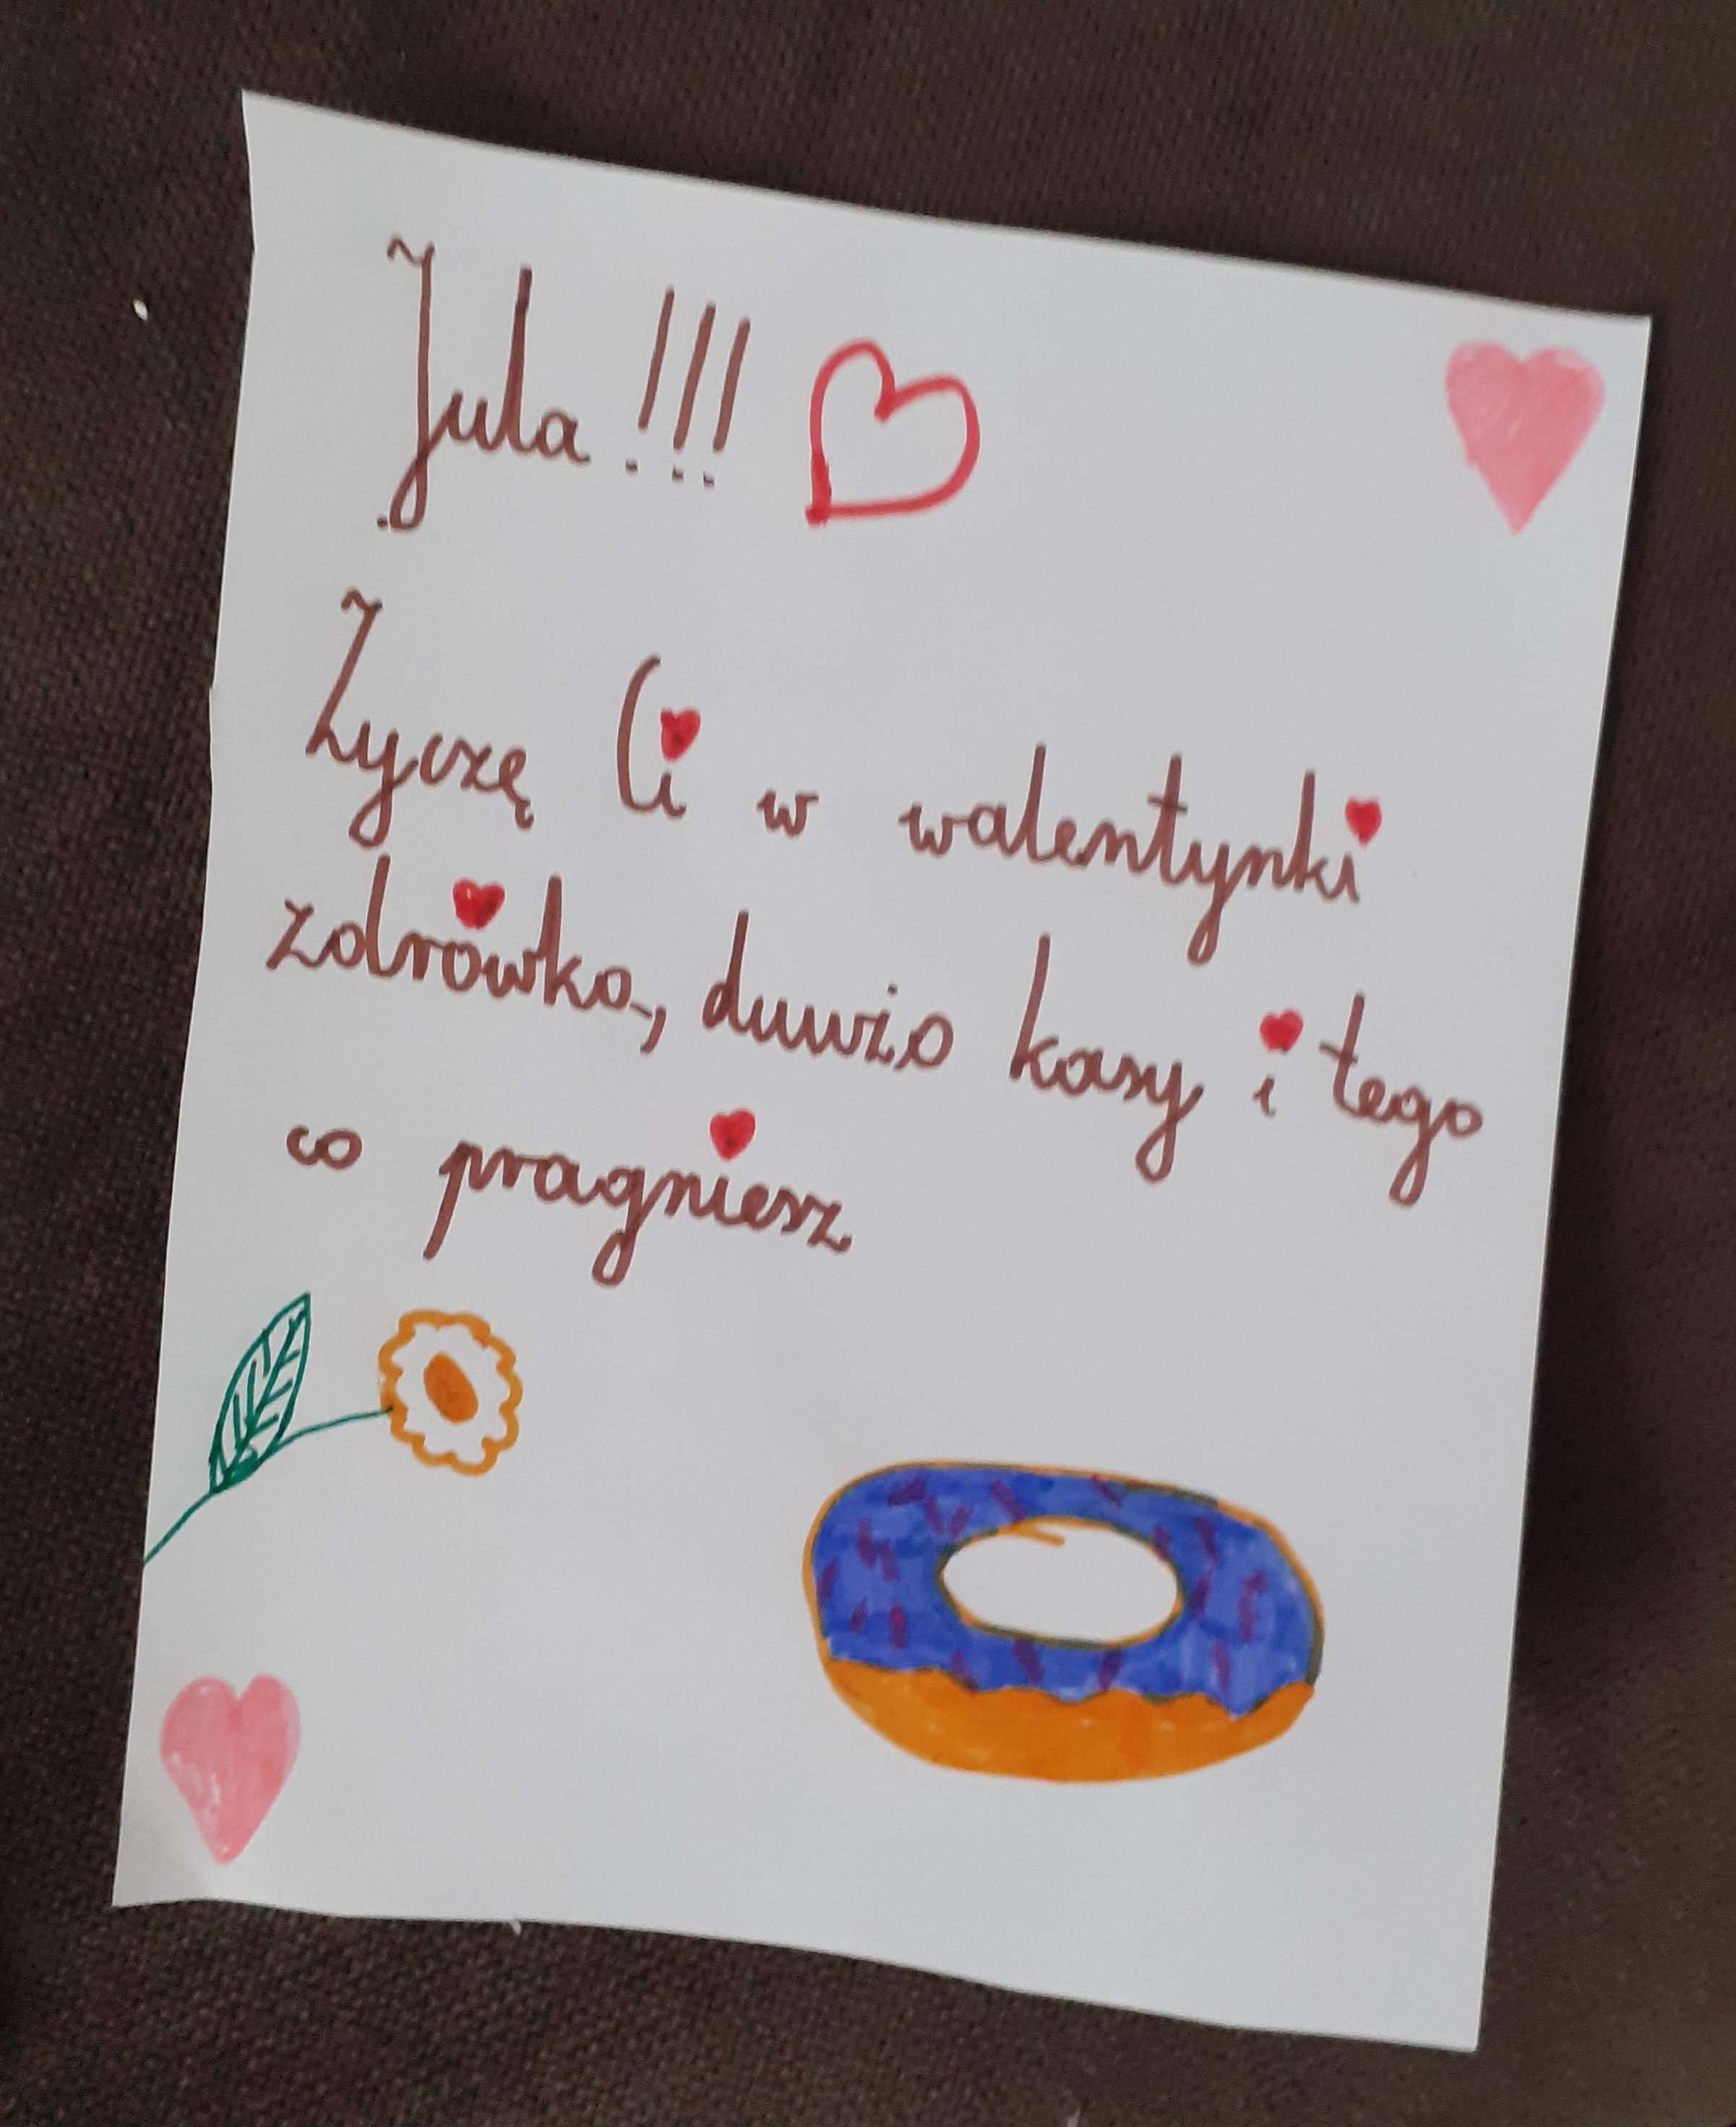 Jula!!!
Zyczę Ci w walentynki
zdrówka, duużo kasy i tego
co pragniesz